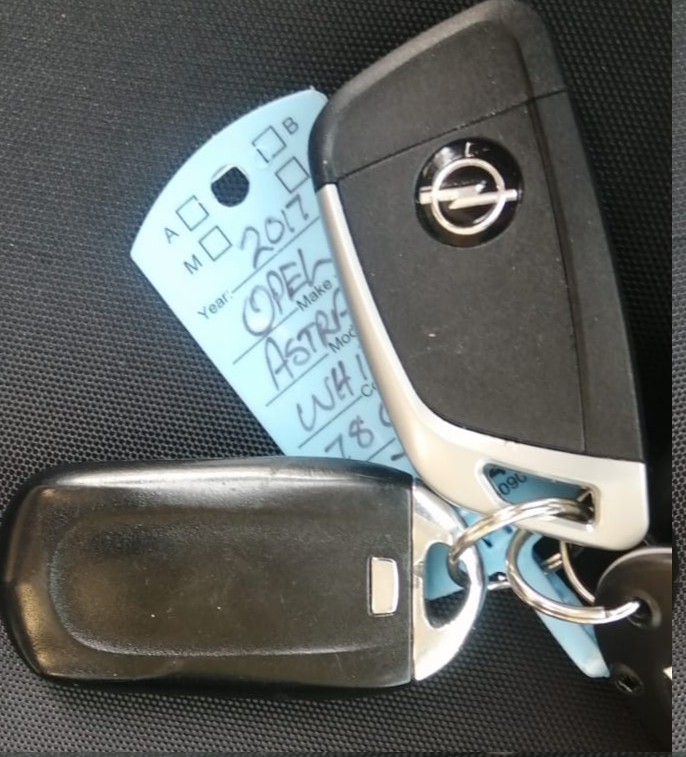 B
A
M
Year: 2017
OPEL
Make
ASTRA
Mod
WHI
Co
78
090